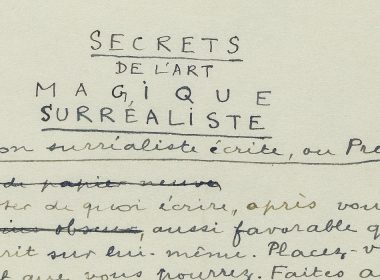 SECRETS
DE L'ART
MAGIQUE
SURRÉALISTE
on surréaliste écrite, ou Pre
du papier neuve
ter de quoi écrire, après vou
obscur, aussi favorable q
rit sur lui-même. Placez-v
l que vous pourrez. Faites a